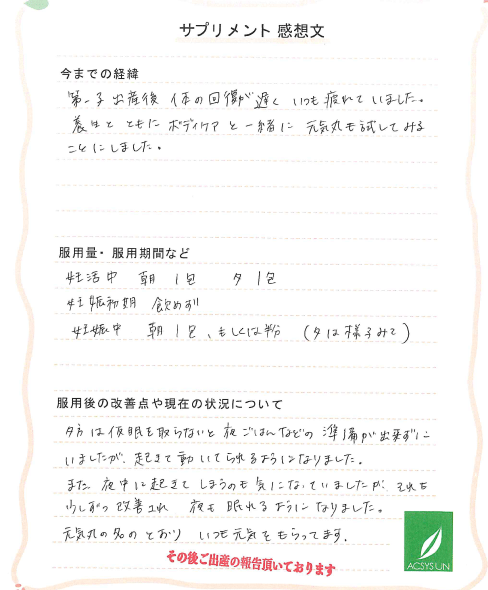 サプリメント 感想文
今までの経緯
第一子 出産後 体の回復が 遅く いつも 疲れて いました。
養生と ともに ボディケア と 一緒に 元気丸も試してみる
ことにしました。
服用量・服用期間など
妊活中 朝 1包 夕 1包
妊娠初期 飲めず
妊娠中 朝 1包、もしくは粉 (夕は様子みて)
服用後の改善点や現在の状況について
夕方は仮眠を取らないと 夜ごはんなどの 準備が出来ずに
いましたが、起きて動いてられるようになりました。
また、夜中に起きて しまうのも気になっていましたが、それも
少しずつ 改善され 夜も 眠れる ようになりました。
元気丸の名の とおり いつも元気を もらってます.
その後ご出産の報告頂いております
ACSYSUN